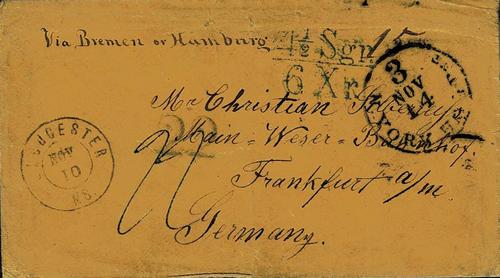 Via Bremen or Hamburg
4½ Sgr. 15
6 Xr.
3
NOV
14
N. YORK
Mr Christian
22
Main-Weser-Bahnhof
Frankfurt a/m.
Germany.
GLOUCESTER
NOV
10
MS.